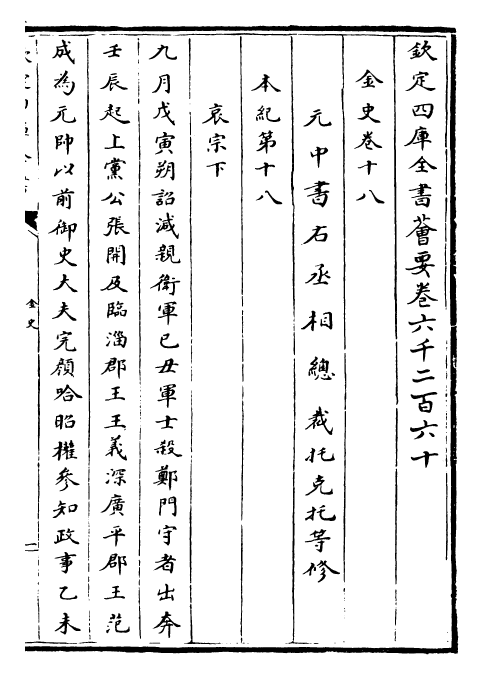 欽定四庫全書薈要卷六千二百六十
金史卷十八
元中書右丞相總裁托克托等修
本紀第十八
哀宗下
九月戊寅朔詔減親衛軍己丑軍士殺鄭門守者出奔
壬辰起上黨公張開及臨淄郡王王義深廣平郡王范
成為元帥以前御史大夫完顔哈昭權參知政事乙未
金史
一